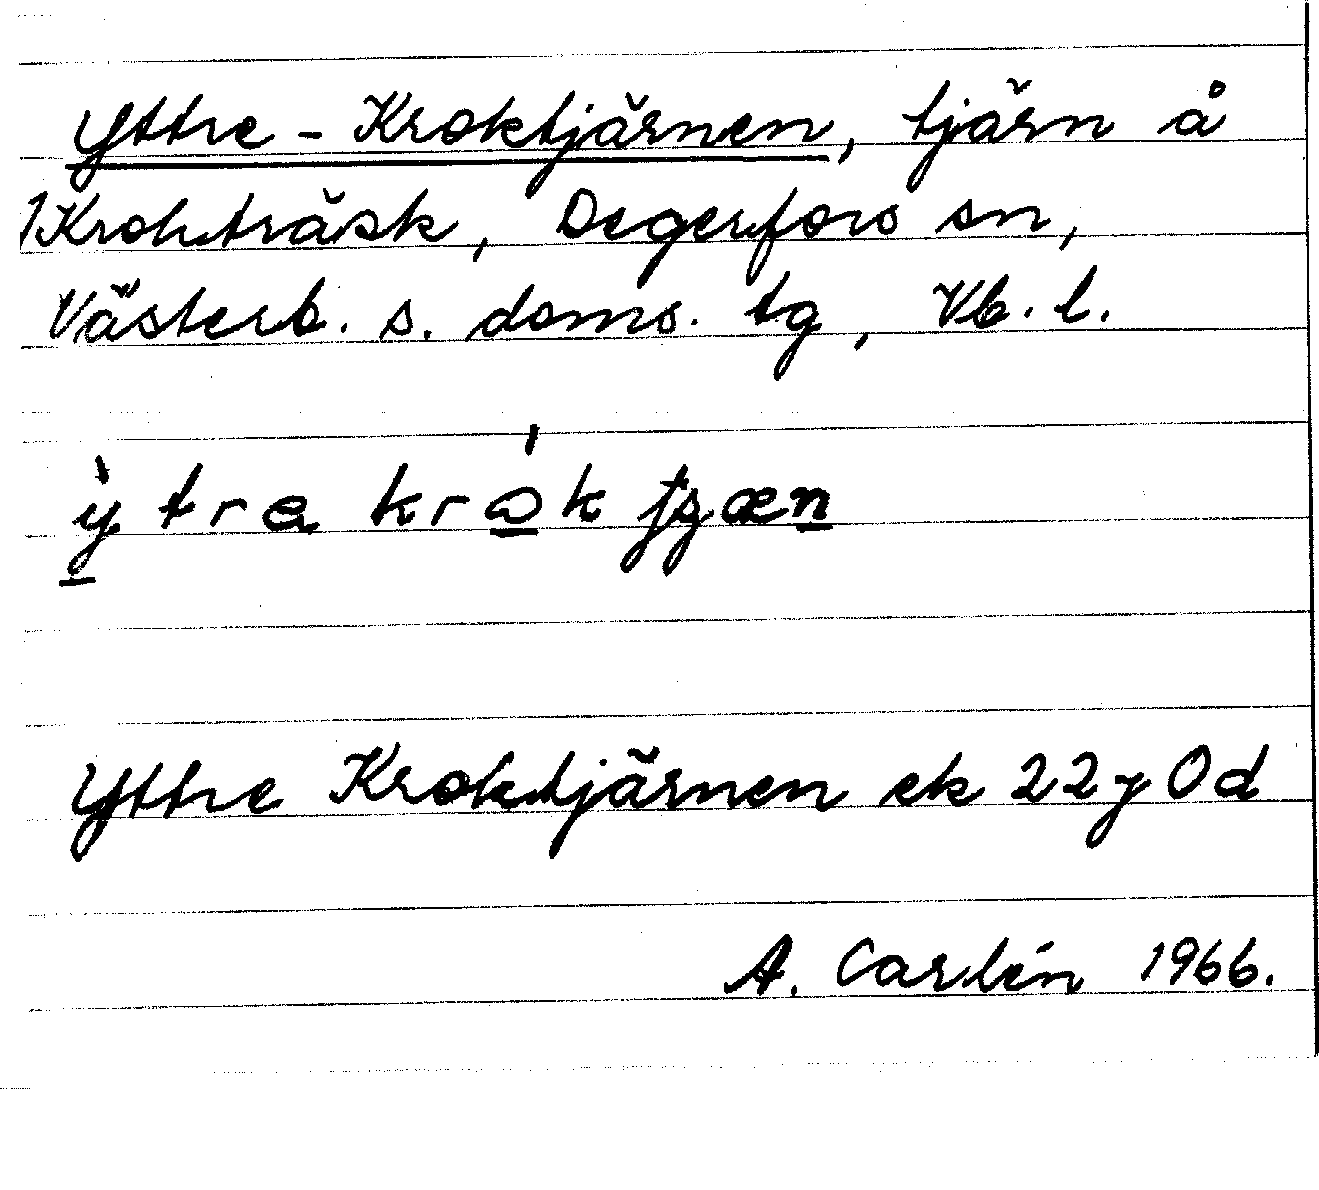 Yttre-Kroktjärnen, tjärn å
1Krokträsk, Degerfors sn,
Västerb. s. doms. tg, Vb. l.
Yttre Kroktjärnen ek 22y0d
A. Carlén 1966.